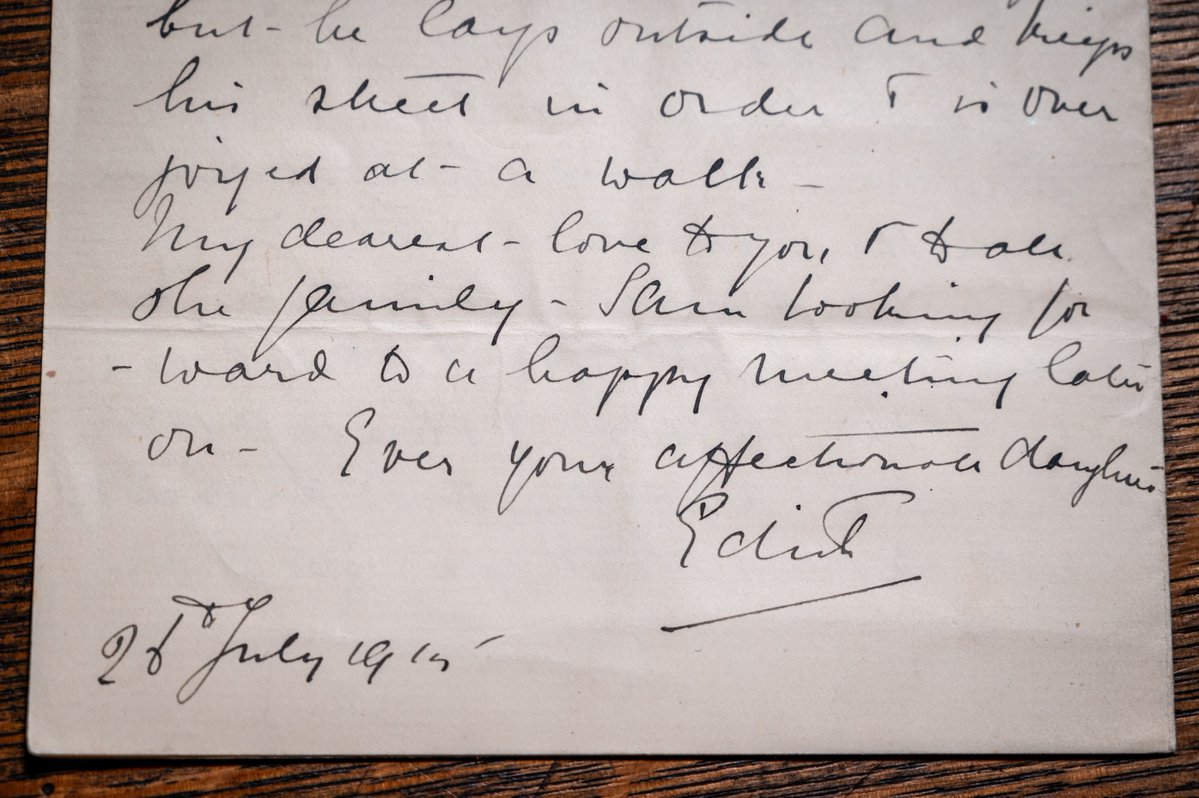 but - he lays outside and keeps
his street in order & is over
joyed at - a walk -
My dearest - love to you, & to all
the family - I am looking for
- ward to a happy meeting later
on - Ever your affectionate daughter
Edith
28th July 1915